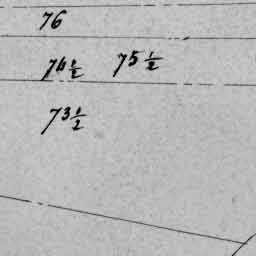 76
76½ 75½
73½